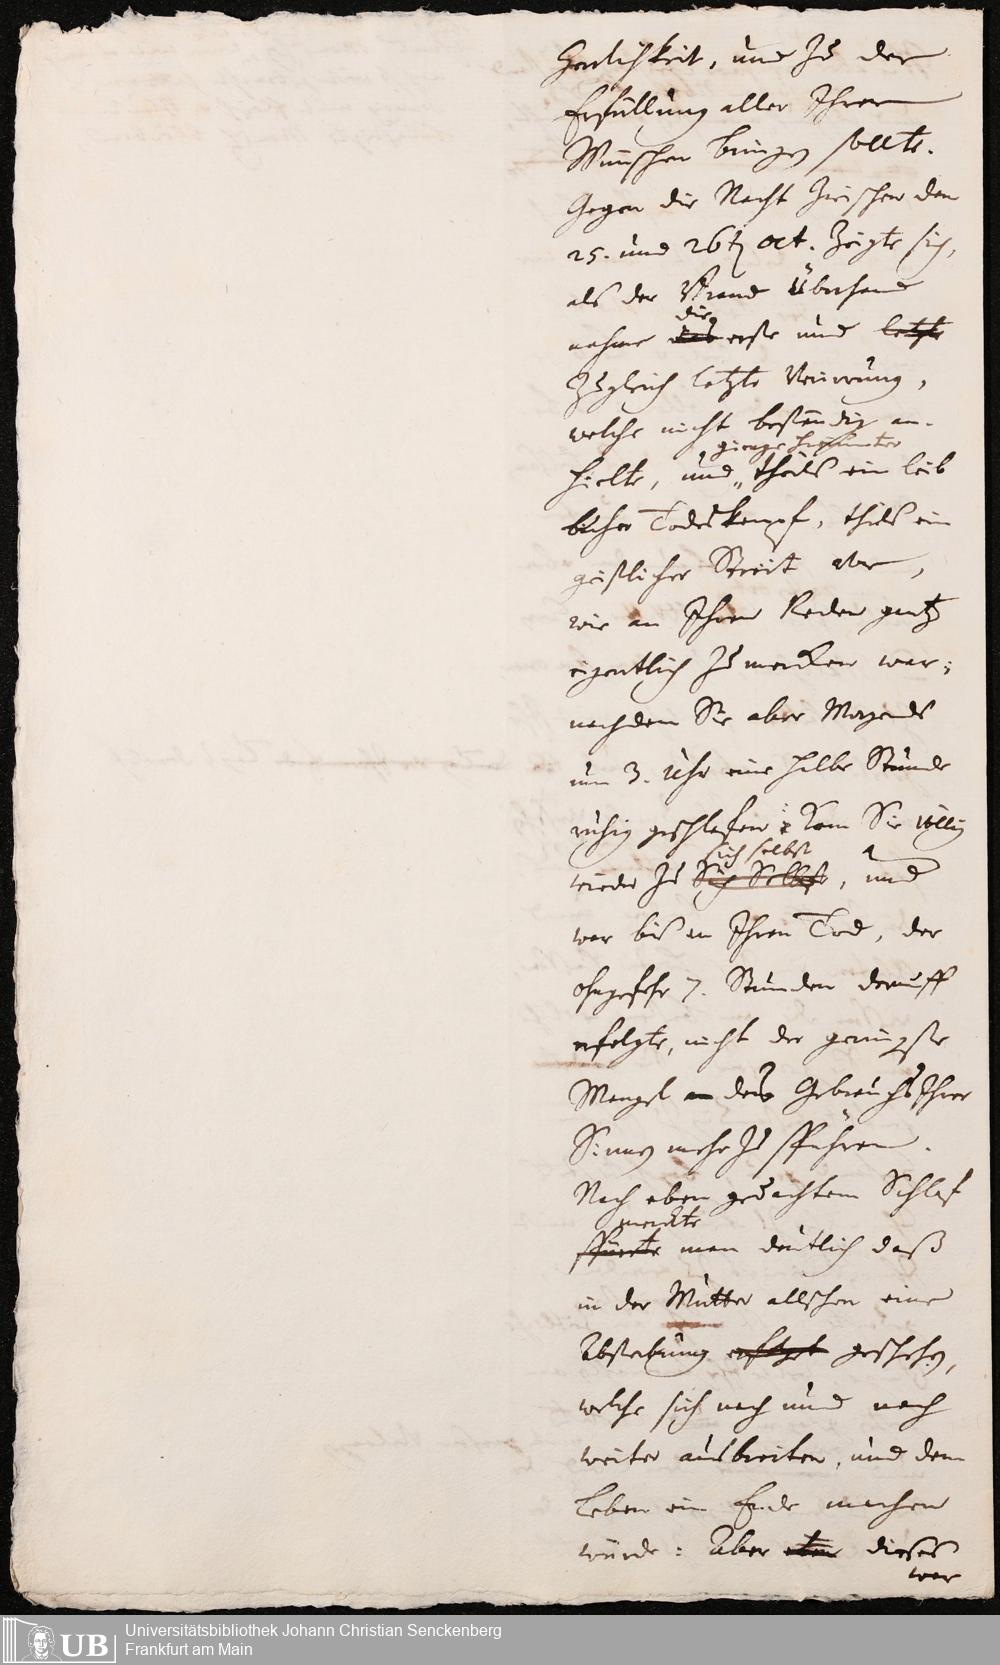 Herrlichkeit, und zu der
Erfüllung aller Ihrer
Wünschen bringen sollte.
Gegen die Nacht zwischen den
25. und 26ten Oct. zeigte sich,
als der Brand überhand
die
nahme das erste und letzte
zugleich letzte Verwirrung,
welche nicht beständig an-
hielte, und theils ein leib
licher Todeskampf, theils ein
geistlicher Streit war,
wie an Ihren Reden gantz
eigentlich zu mercken war;
nachdem Sie aber Morgends
um 3. Uhr eine halbe Stunde
ruhig geschlafen; kam Sie völlig
sich selbst
wieder zu Sich Selbst, und
war bis an Ihren Tod, der
ohngefehr 7. Stunden darauff
erfolgte, nicht der geringste
Mangel an des Gebrauchs Ihrer
Sinnen mehr zu spühren.
Nach eben gedachtem Schlaf
merckte
spürte man deutlich daß
in der Mutter allschon eine
Absterbung erfolgt geschehen,
welche sich nach und nach
weiter ausbreiten, und dem
Leben ein Ende machen
würde: Aber dieses
war
UB
Universitätsbibliothek Johann Christian Senckenberg
Frankfurt am Main